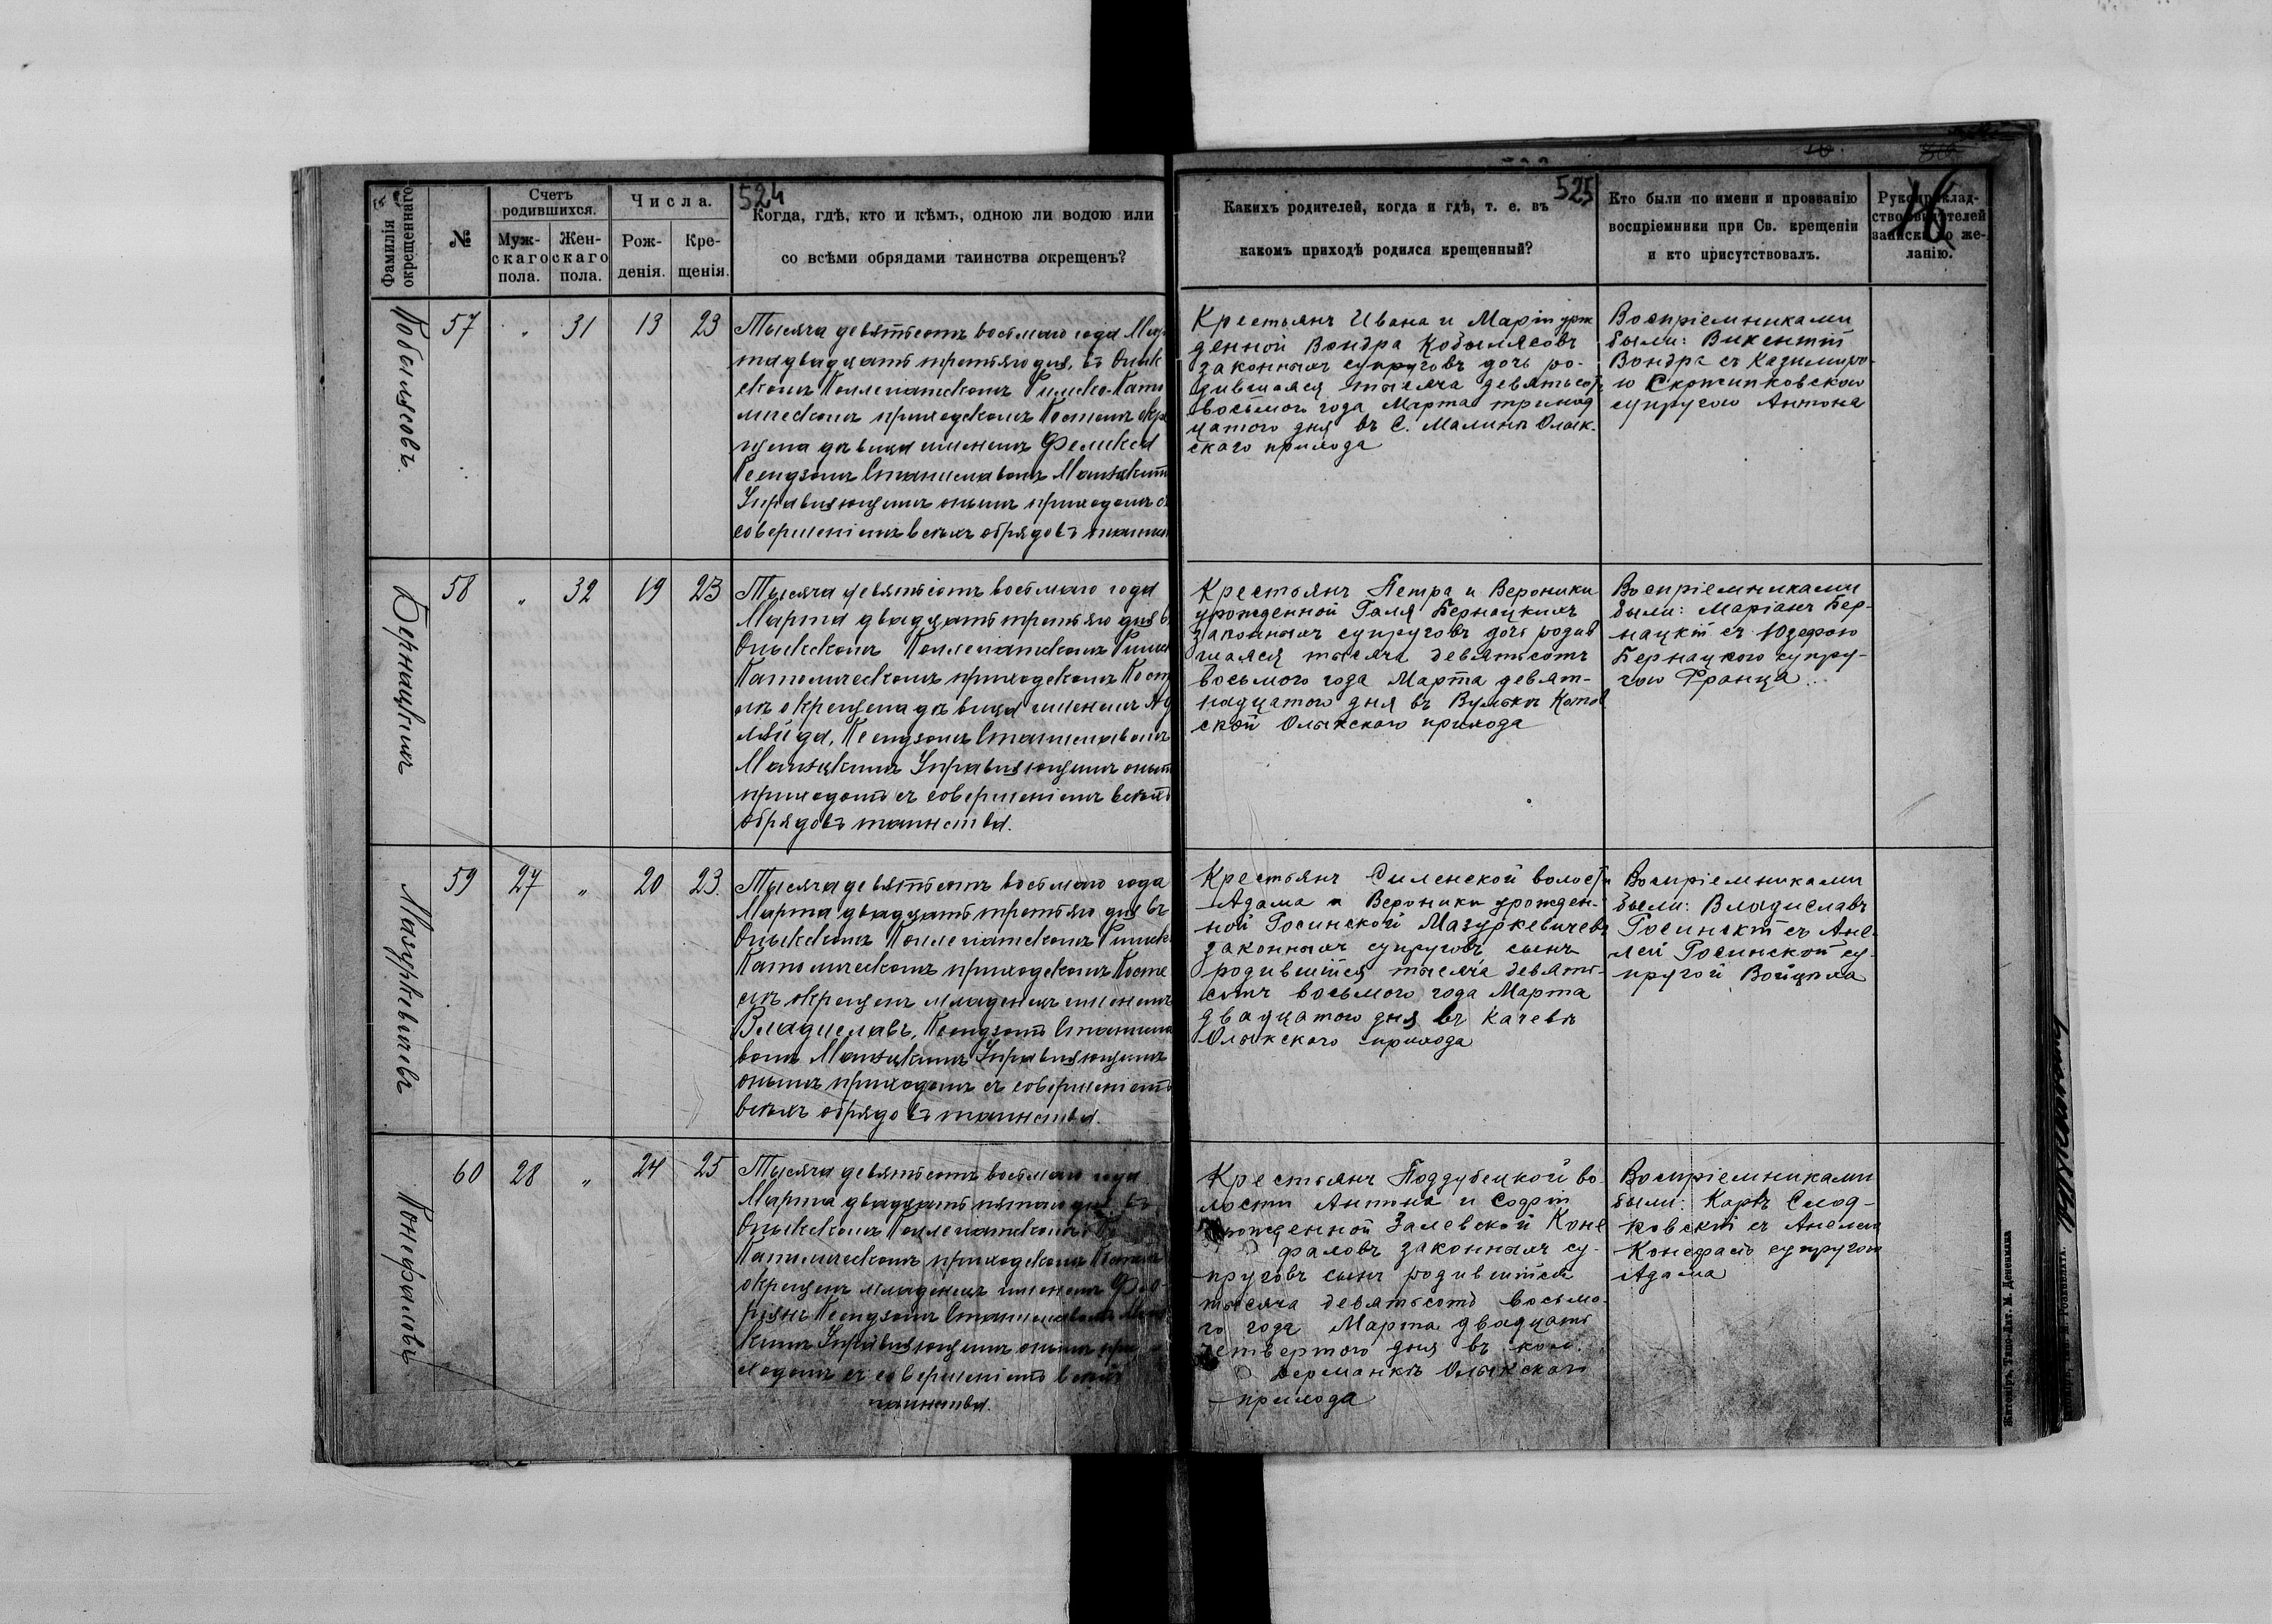 524
525
16
Фамилія окрещеннаго.
№
Счетъ родившихся.
Муж-
скаго
пола.
Жен-
скаго
пола.
Числа.
Рож-
денія.
Кре-
щенія.
Когда, гдѣ, кто и кѣмъ, одною ли водою или
со всѣми обрядами таинства окрещенъ?
Какихъ родителей, когда и гдѣ, т. е. въ
какомъ приходѣ родился крещенный?
Кто были по имени и прозванію
воспріемники при Св. крещеніи
и кто присутствовалъ.
Рукоприклад-
ство свидѣтелей
записки по же-
ланію.
Кобылясовъ.
57 " 31 13 23
Тысяча девятьсотъ восьмаго года Мар
та двадцать третьяго дня, въ Олык
скомъ Коллегіатскомъ Римско-Като
лическомъ приходскомъ Костелѣ окре
щена дѣвица именемъ Феликса
Ксендзомъ Станиславомъ Мацкимъ
Управляющимъ онымъ приходомъ съ
совершеніемъ всѣхъ обрядовъ таин
Крестьянъ Ивана и Маріи урож
денной Вондра Кобылясовъ
законныхъ супруговъ дочь ро-
дившаяся тысяча девятьсотъ
восьмого года Марта тринад
цатого дня въ С. Малинѣ Олык-
скаго прихода
Воспріемниками
были: Викентій
Вондра съ Казимиро-
ю Скржипковскою
супругою Антона
Бернацкихъ
58 " 32 19 23
Тысяча девятьсотъ восьмаго года
Марта двадцать третьяго дня въ
Олыкскомъ Коллегіатскомъ Римск
Католическомъ приходскомъ Кост
елѣ окрещена дѣвица именемъ Аде
лѣйда, Ксендзомъ Станиславомъ
Мацкимъ Управляющимъ онымъ
приходомъ съ совершеніемъ всѣхъ
обрядовъ таинства.
Крестьянъ Петра и Вероники
урожденной Галя Бернацкихъ
законныхъ супруговъ дочь родив
шаяся тысяча девятьсотъ
восьмого года Марта девят-
надцатого дня въ Вулькѣ Котов
ской Олыкскаго прихода
Воспріемниками
были: Маріанъ Бер-
нацкій съ Юзефою
Бернацкого супру-
гою Франца.
Мазуркевичевъ
59 27 " 20 23.
Тысяча девятьсотъ восьмаго года
Марта двадцать третьяго дня въ
Олыкскомъ Коллегіатскомъ Римск
Католическомъ приходскомъ Косте
елѣ окрещенъ младенецъ именемъ
Владиславъ, Ксендзомъ Станисла
вомъ Мацкимъ Управляющимъ
онымъ приходомъ съ совершеніемъ
всѣхъ обрядовъ таинства.
Крестьянъ волости
Адама и Вероники урожден-
ной Госинской Мазуркевичевъ
законныхъ супруговъ сынъ
родившійся тысяча девять-
сотъ восьмого года Марта
двадцатого дня въ Качевѣ
Олыкскаго прихода
Воспріемниками
были: Владиславъ
Госинскій съ Ане-
лей Госинской су-
пругой Войцѣха
Конефаловъ
60 28 " 24 25
Тысяча девятьсотъ восьмаго года
Марта двадцать пятаго дня въ
Олыкскомъ Коллегіатскомъ
Католическомъ приходскомъ Костел
окрещенъ младенецъ именемъ Фло-
ріянъ Ксендзомъ Станиславомъ Мац
кимъ Управляющимъ онымъ при
ходомъ съ совершеніемъ всѣхъ
таинства.
Крестьянъ Поддубецкой во-
лости Антона и Софіи
урожденной Залевской Коне
фаловъ законныхъ су-
пруговъ сынъ родившійся
тысяча девятьсотъ восьмо-
го года Марта двадцать
четвертого дня въ кол.
Дерманкѣ Олыкскаго
прихода
Воспріемниками
были: Карлъ Смод-
ровскій съ Анелею
Конефалъ супругою
Адама
Житомиръ, Типо-Лит. М. Дененмана